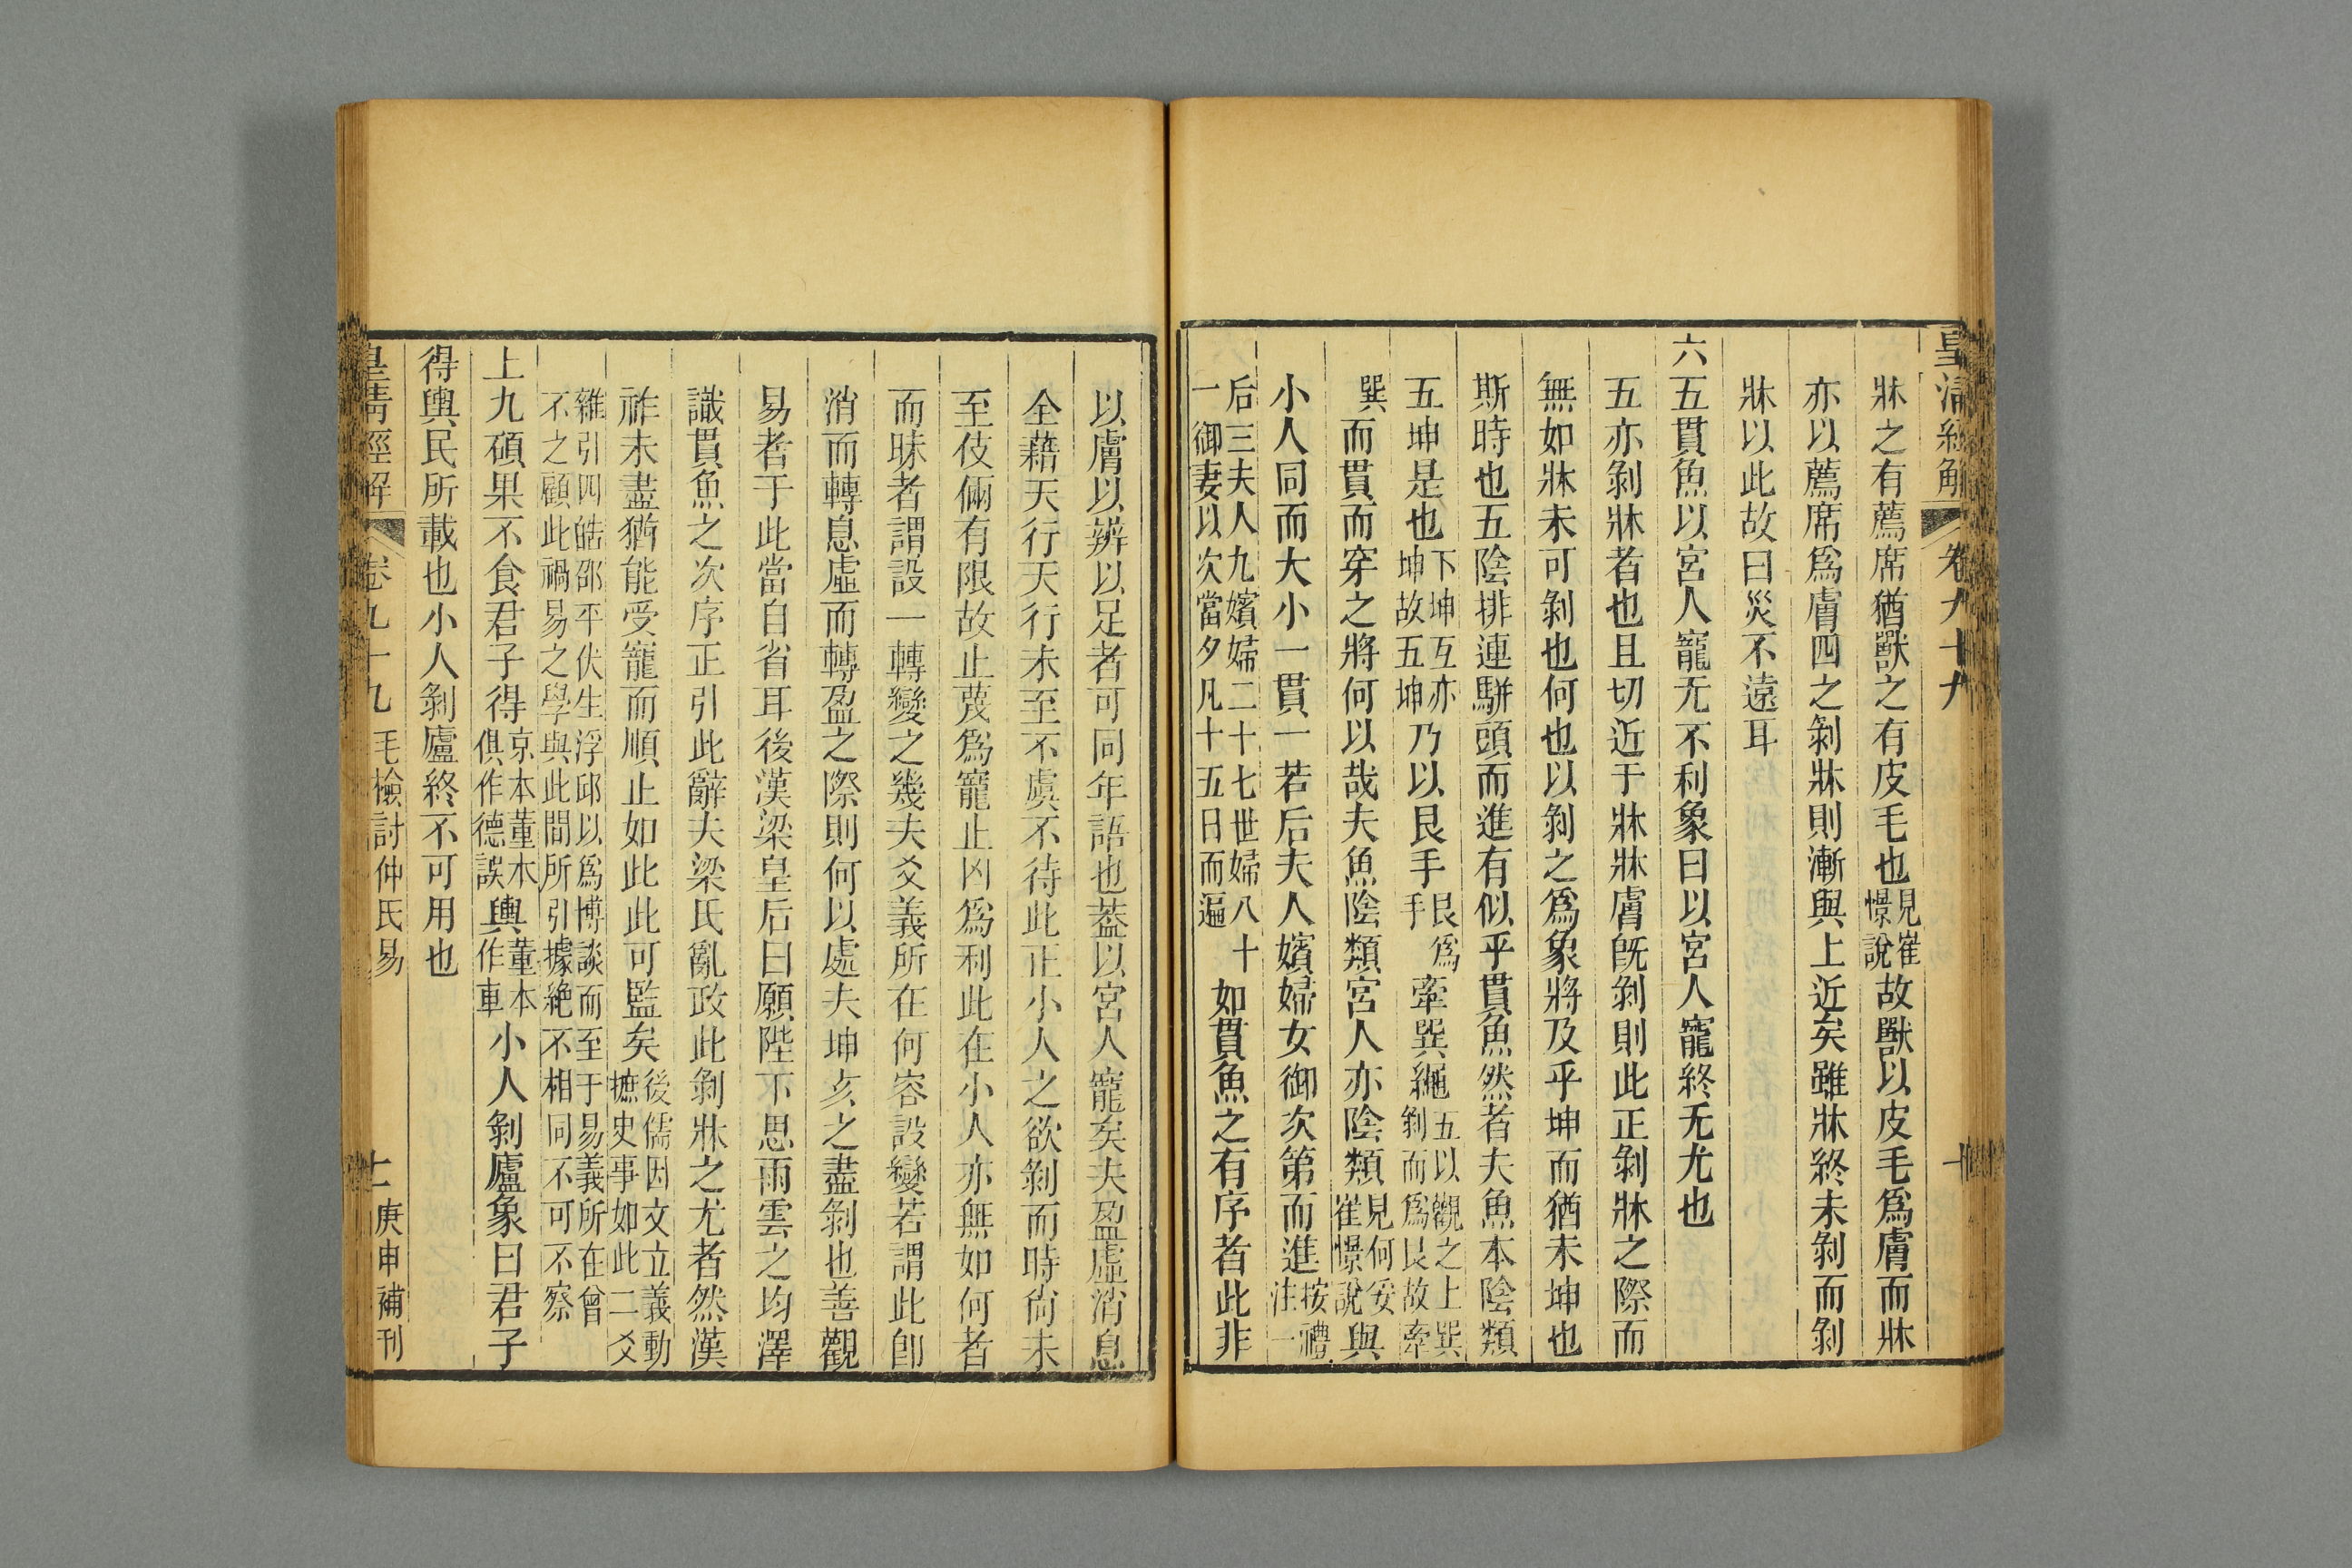 皇清經解 卷九十九 十
牀之有薦席猶獸之有皮毛也見崔憬說故獸以皮毛爲膚而牀
亦以薦席爲膚四之剝牀則漸與上近矣雖牀終未剝而剝
牀以此故曰災不遠耳
六五貫魚以宮人寵无不利象曰以宮人寵終无尤也
五亦剝牀者也且切近于牀牀膚旣剝則此正剝牀之際而
無如牀未可剝也何也以剝之爲象將及乎坤而猶未坤也
斯時也五陰排連駢頭而進有似乎貫魚然者夫魚本陰類
五坤是也下坤互亦坤故五坤乃以艮手艮爲手牽巽繩五以觀之上巽剝而爲艮故牽
巽而貫而穿之將何以哉夫魚陰類宮人亦陰類見何妥崔憬說與
小人同而大小一貫一若后夫人嬪婦女御次第而進按禮注一
后三夫人九嬪婦二十七世婦八十一御妻以次當夕凡十五日而遍如貫魚之有序者此非
以膚以辨以足者可同年語也葢以宮人寵矣夫盈虛消息
全藉天行天行未至不虞不待此正小人之欲剝而時尙未
至伎倆有限故止蔑爲寵止凶爲利此在小人亦無如何者
而昧者謂設一轉變之幾夫爻義所在何容設變若謂此卽
消而轉息虛而轉盈之際則何以處夫坤亥之盡剝也善觀
易者于此當自省耳後漢梁皇后曰願陛下思雨雲之均澤
識貫魚之次序正引此辭夫梁氏亂政此剝牀之尤者然漢
祚未盡猶能受寵而順止如此此可監矣後儒因文立義動摭史事如此二爻
雜引四皓邵平伏生浮邱以爲博談而至于易義所在曾不之顧此禍易之學與此間所引據絶不相同不可不察
上九碩果不食君子得京本董本俱作德誤輿董本作車小人剝廬象曰君子
得輿民所載也小人剝廬終不可用也
皇清經解 卷九十九 毛檢討仲氏易 十一 庚申補刊